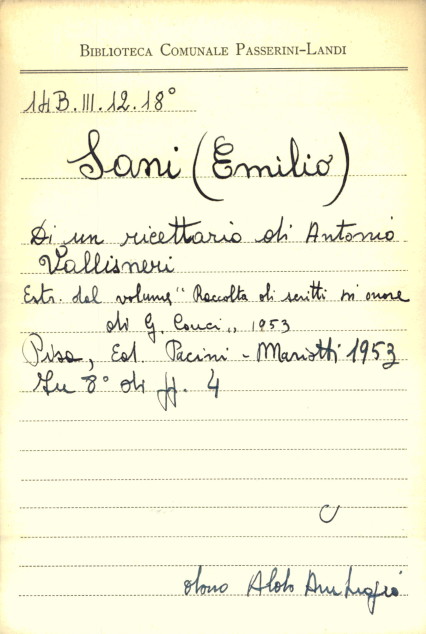 BIBLIOTECA COMUNALE PASSERINI-LANDI
14B.III.12.18°
Sani (Emilio)
Di un ricettario di Antonio
Vallisneri
Estr. dal volume "Raccolta di scritti in onore
di G. Conci„ 1953
Pisa, Ed. Pacini - Mariotti 1953
In 8° di ff. 4
dono Aldo Ambrogio